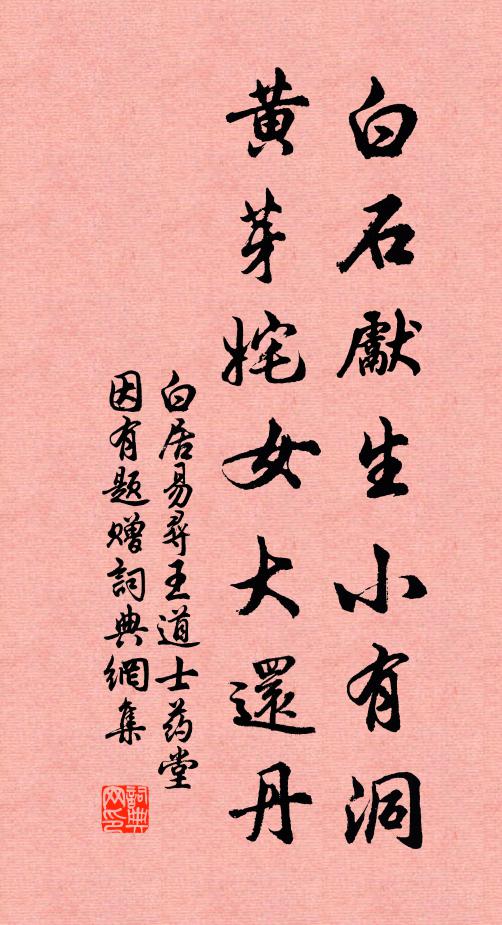 白石獻生小有洞
黃芽姹女大還丹
白居易尋王道士药堂
因有题赠詞典網集
詞典網印